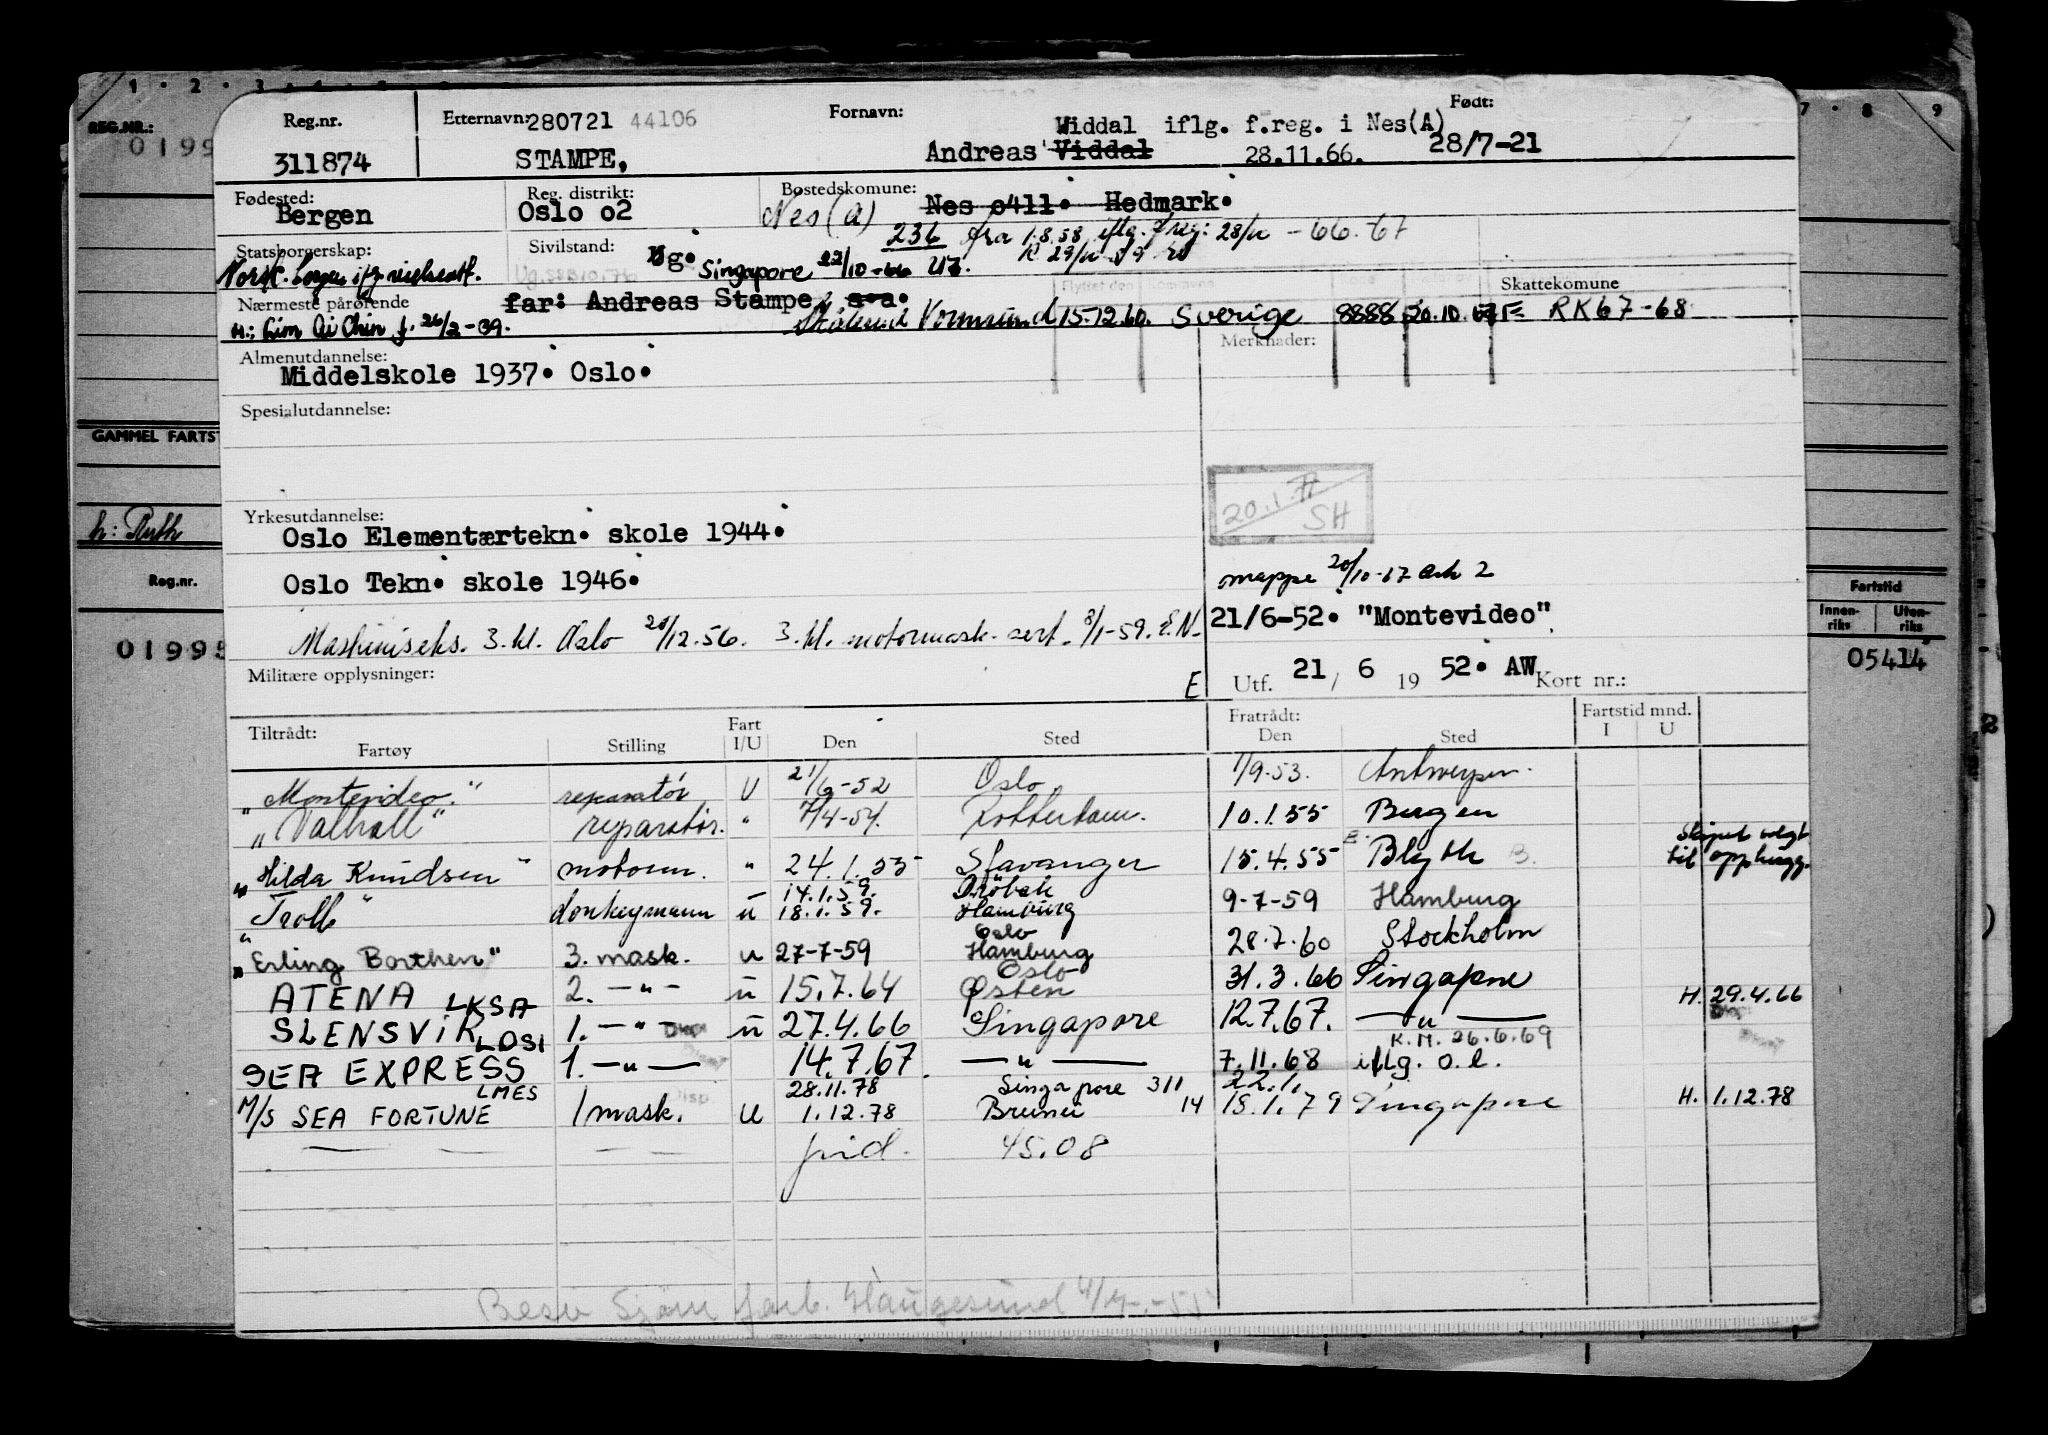 1 · 2 · 3 · 4 · 5
7 · 8 · 9
REG.NR.:
0199
GAMMEL FARTS
h: Ruth
Reg.nr.
01995
Fartstid
Innen-riks Uten-riks
05414
Reg.nr. Etternavn: 280721 44106 Fornavn: Født:
Widdal iflg. f.reg. i Nes(A)
311874 STAMPE, Andreas Viddal 28.11.66. 28/7-21
Fødested: Reg. distrikt: Bostedskomune:
Bergen Oslo 02 Nes (a) Nes o411. Hedmark.
236 fra 1.8.58 iflg. freg: 28/11 -66-67
Statsborgerskap: Sivilstand: Ug. Singapore 22/10-66 Utz.
Norsk.
Nærmeste pårørende far: Andreas Stampe, s.a. Flyttet den Kommune Skattekomune
H.: Lim Ai Chin f. 26/2-39. Vormsund 15.12.60. Sverige 8888 20.10.67 E RK67-68
Almenutdannelse: Merknader:
Middelskole 1937. Oslo.
Spesialutdannelse:
20.1.77
SH
Yrkesutdannelse:
Oslo Elementærtekn. skole 1944.
Oslo Tekn. skole 1946.
mappe 20/10-67 ark 2
21/6-52. "Montevideo"
Maskinisteks. 3. kl. Oslo 20/12.56. 3. kl. motormask. sert. 8/1-59. E.N.
Militære opplysninger: E
Utf. 21 / 6 19 52. AW Kort nr.:
Tiltrådt: Fratrådt: Fartstid mnd.
Fartøy Stilling Fart I/U Den Sted Den Sted I U
"Montevideo." reparatør U 21/6-52 Oslo 1/9-53. Antwerpen.
"Valhall" reparatør. " 7/4-54. Rotterdam. 10.1.55 Bergen
"Hilda Knudsen" motorm. " 24.1.55 Stavanger 15.4.55 Blyth Skipet solgt til opphugg.
14.1.59. Drøbak
"Troll" donkeymann u 18.1.59. Hamburg 9-7-59 Hamburg
Oslo
"Erling Borthen" 3. mask. u 27-7-59 Hamburg 28.7.60 Stockholm
Oslo
ATENA LKSA 2. —"— u 15.7.64 Østen 31.3.66 Singapore H. 29.4.66
SLENSVIK LDSI 1. —"— u 27.4.66 Singapore 12.7.67. —"—
K.M. 26.6.69
SEA EXPRESS 1. —"— 14.7.67. —"— 7.11.68 iflg. o.l.
LMES 28.11.78 Singapore 311 22.1.
M/S SEA FORTUNE 1 mask. U 1.12.78 Brunei 14 15.1.79 Singapore H. 1.12.78
45.08
Haugesund